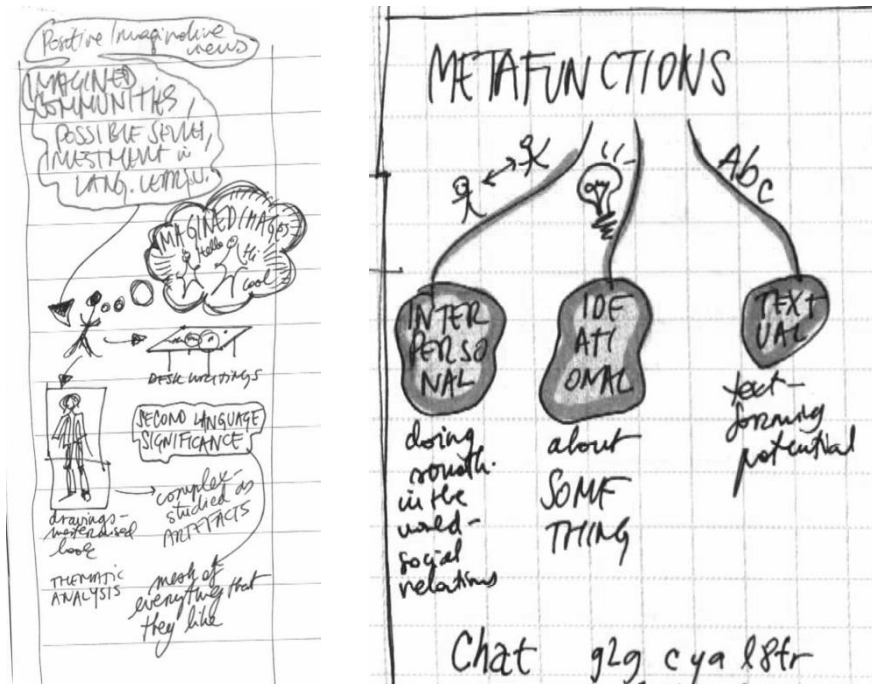 Positive/Imaginative
views
IMAGINED
COMMUNITIES,
POSSIBLE SELVES,
INVESTMENT in
LANG. LEARN.
IMAGINED IMAGES
Hello
Hi
cool
DESK WRITINGS
SECOND LANGUAGE
SIGNIFICANCE
complex-
studied as
ARTEFACTS
drawings-
book
THEMATIC
ANALYSIS
mesh of
everything that
they like
METAFUNCTIONS
Abc
INTER
PERSO
NAL
IDE
ATI
ONAL
TEXT
UAL
doing
smeth.
in the
world-
social
relations
about
SOME
THING
text-
forming
potential
Chat g2g cya l8tr